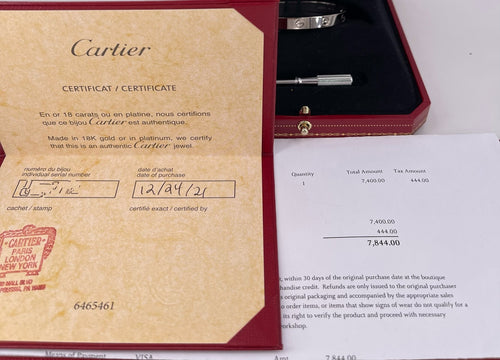 Cartier
CERTIFICAT / CERTIFICATE
En or 18 carats ou en platine, nous certifions
que ce bijou Cartier est authentique.
Made in 18K gold or in platinum, we certify
that this is an authentic Cartier jewel.
numéro du bijou
individual serial number
date d'achat
date of purchase
12/24/21
cachet / stamp
certifié exact / certified by
CARTIER
PARIS
LONDON
NEW YORK
MALL BLVD
6465461
Quantity Total Amount Tax Amount
1 7,400.00 444.00
7,400.00
444.00
7,844.00
, within 30 days of the original purchase date at the boutique
handise credit. Refunds are only issued to the original purchaser
s original packaging and accompanied by the appropriate sales
to order items, or items that show signs of wear do not qualify for a
its right to verify the product and proceed with necessary
workshop.
Means of Payment VISA Amt 7,844.00